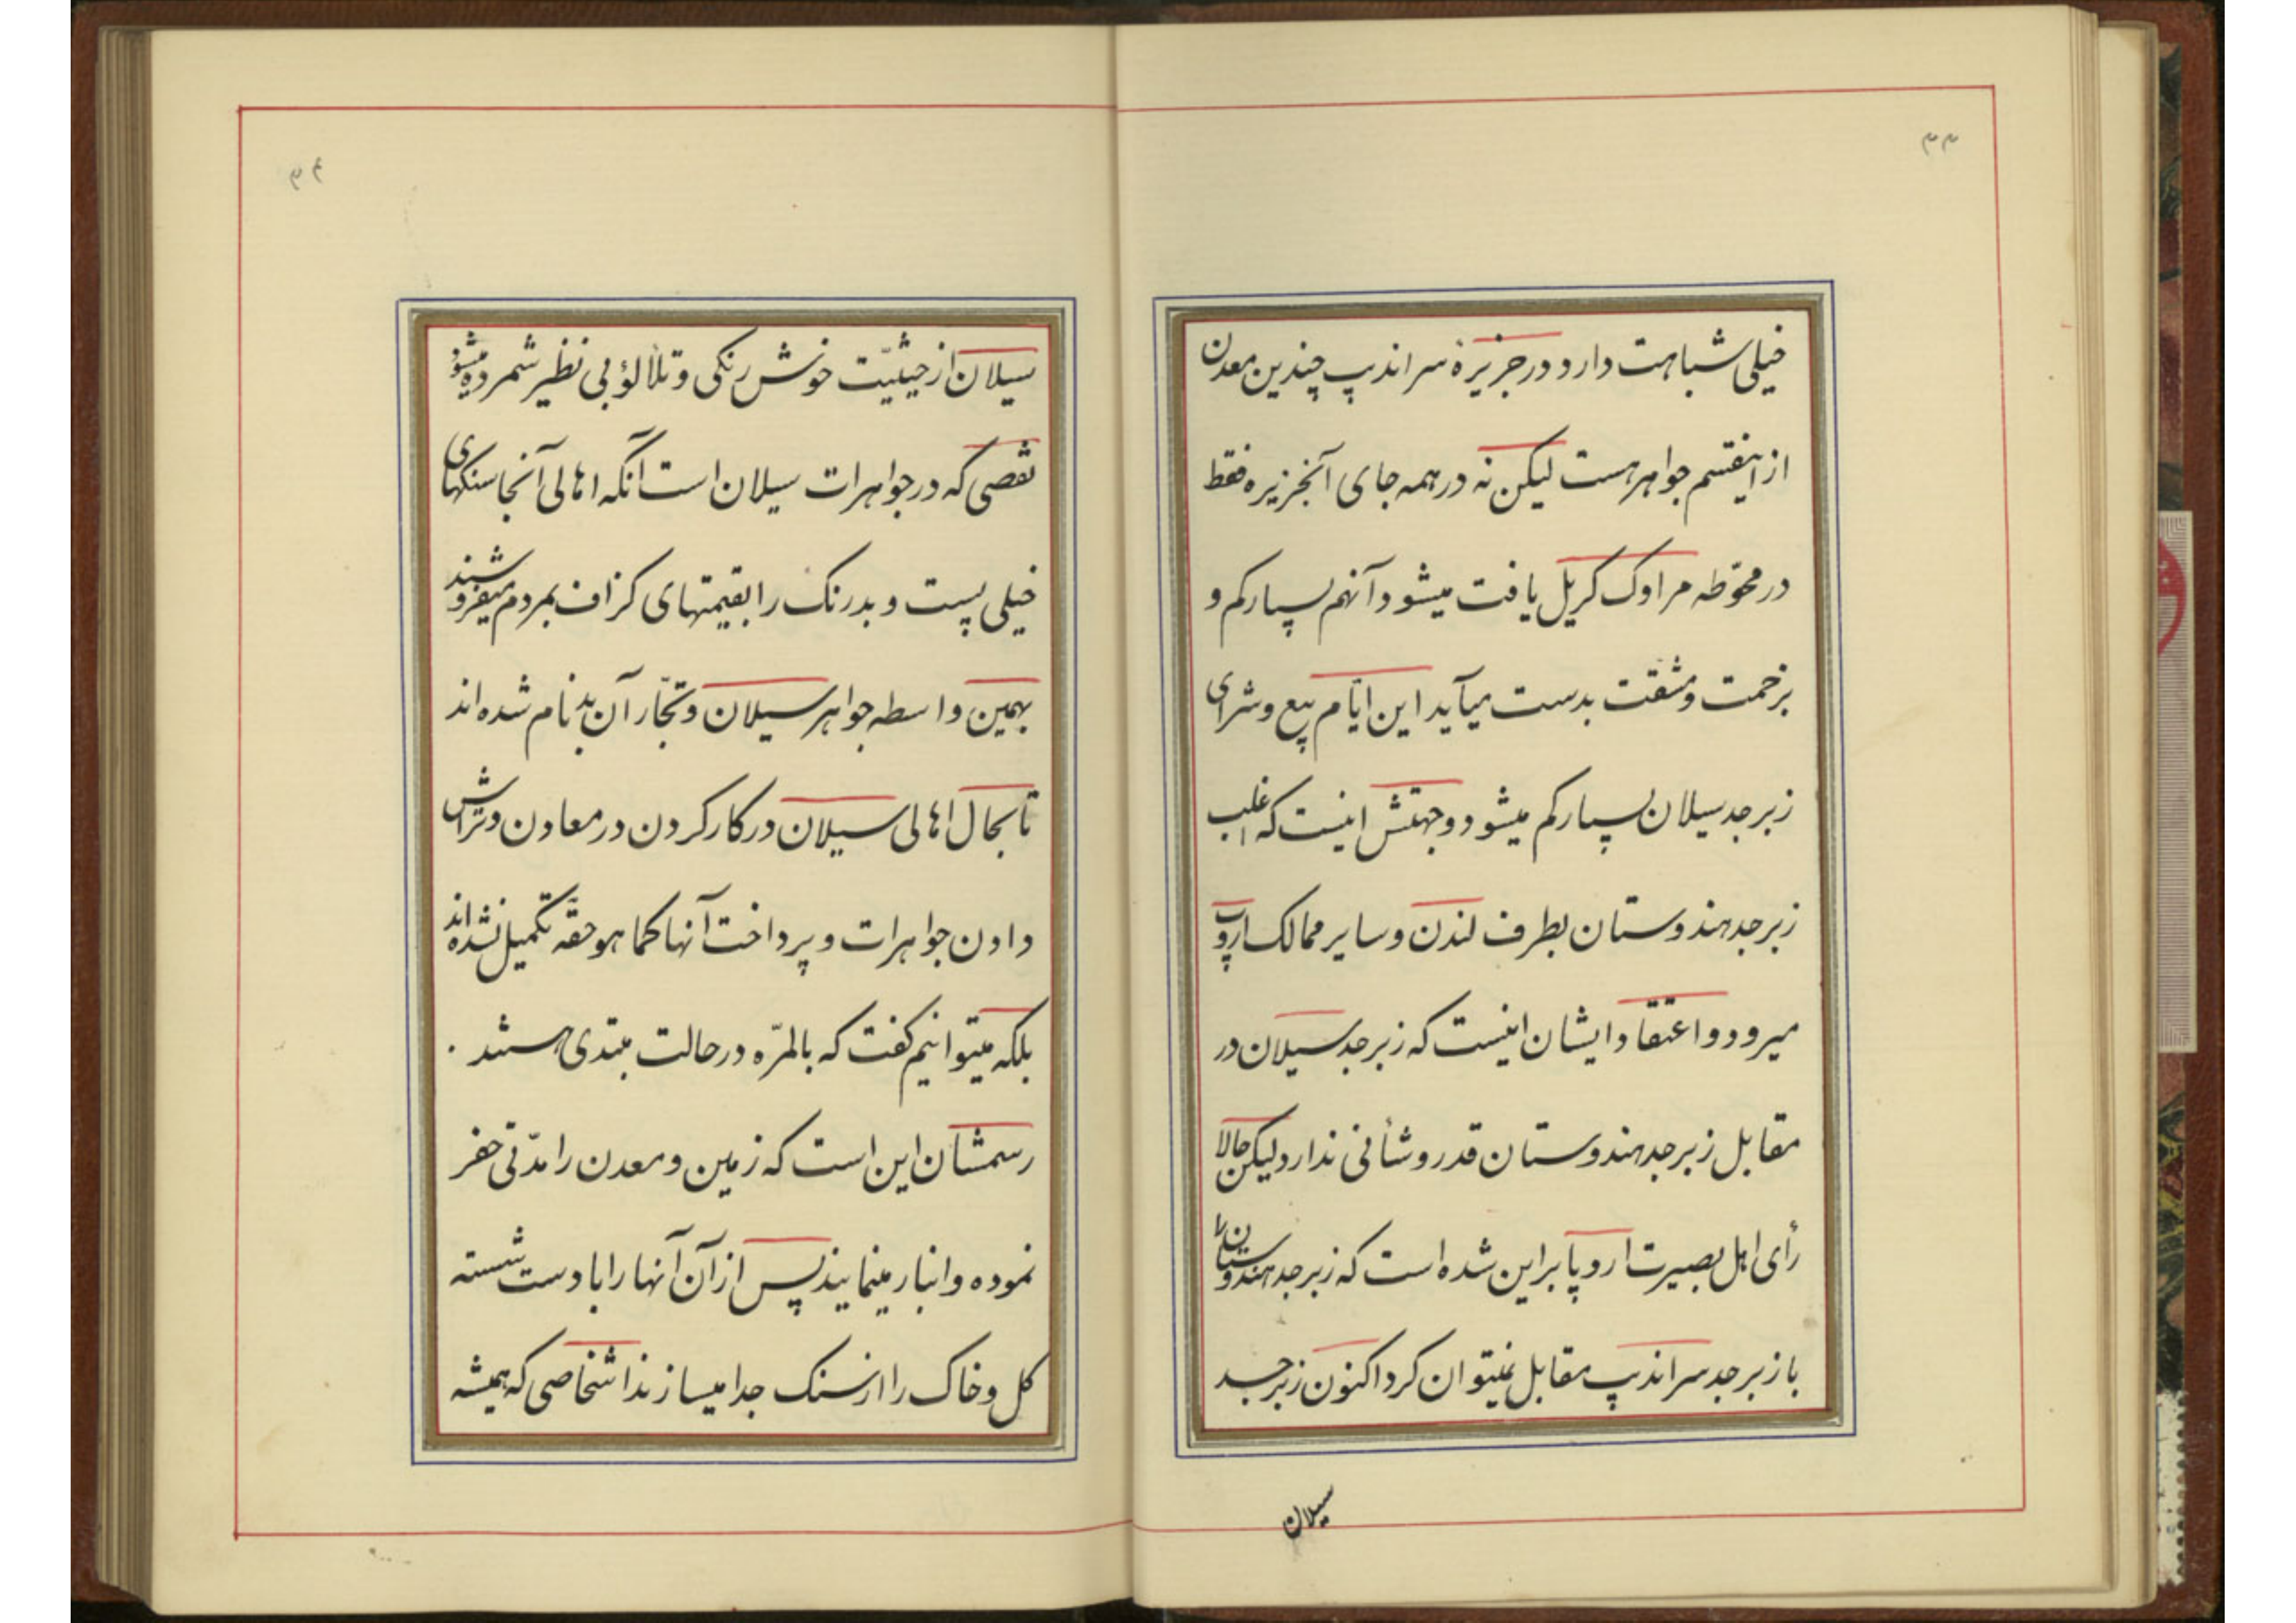 ۳۳
خیلی شباهت دارد و در جزیرهٔ سراندیپ چندین معدن
از اینقسم جواهر هست لیکن نه در همه جای آنجزیره فقط
در محوّطه مراوک کریل یافت میشود آنهم بسیار کم و
بزحمت و مشقّت بدست میآید این ایّام بیع و شرای
زبرجد سیلان بسیار کم میشود و جهتش اینست که اغلب
زبرجد هندوستان بطرف لندن و سایر ممالک اروپ
میرود و اعتقاد ایشان اینست که زبرجد سیلان در
مقابل زبرجد هندوستان قدر و شأنی ندارد لیکن حالا
رأی اهل بصیرت اروپا براین شده است که زبرجد هندوستان را
با زبرجد سراندیپ مقابل نمیتوان کرد اکنون زبرجد
سیلان
۳۴
سیلان از حیثیّت خوش رنکی و تلألؤ بی نظیر شمرده میشود
نقصی که در جواهرات سیلان است آنکه اهالی آنجا سنکهای
خیلی پست و بدرنک را بقیمتهای کزاف بمردم میفروشند
بهمین واسطه جواهر سیلان و تجّار آن بدنام شده اند
تا بحال اهالی سیلان در کار کردن در معادن و تراش
دادن جواهرات و پرداخت آنها کما هو حقّه تکمیل نشده اند
بلکه میتوانیم کفت که بالمرّه در حالت مبتدی هستند ۰
رسمشان این است که زمین و معدن را مدّتی حفر
نموده و انبار مینمایند پس از آن آنها را با دست شسته
کل و خاک را از سنک جدا میسازند اشخاصی که همیشه